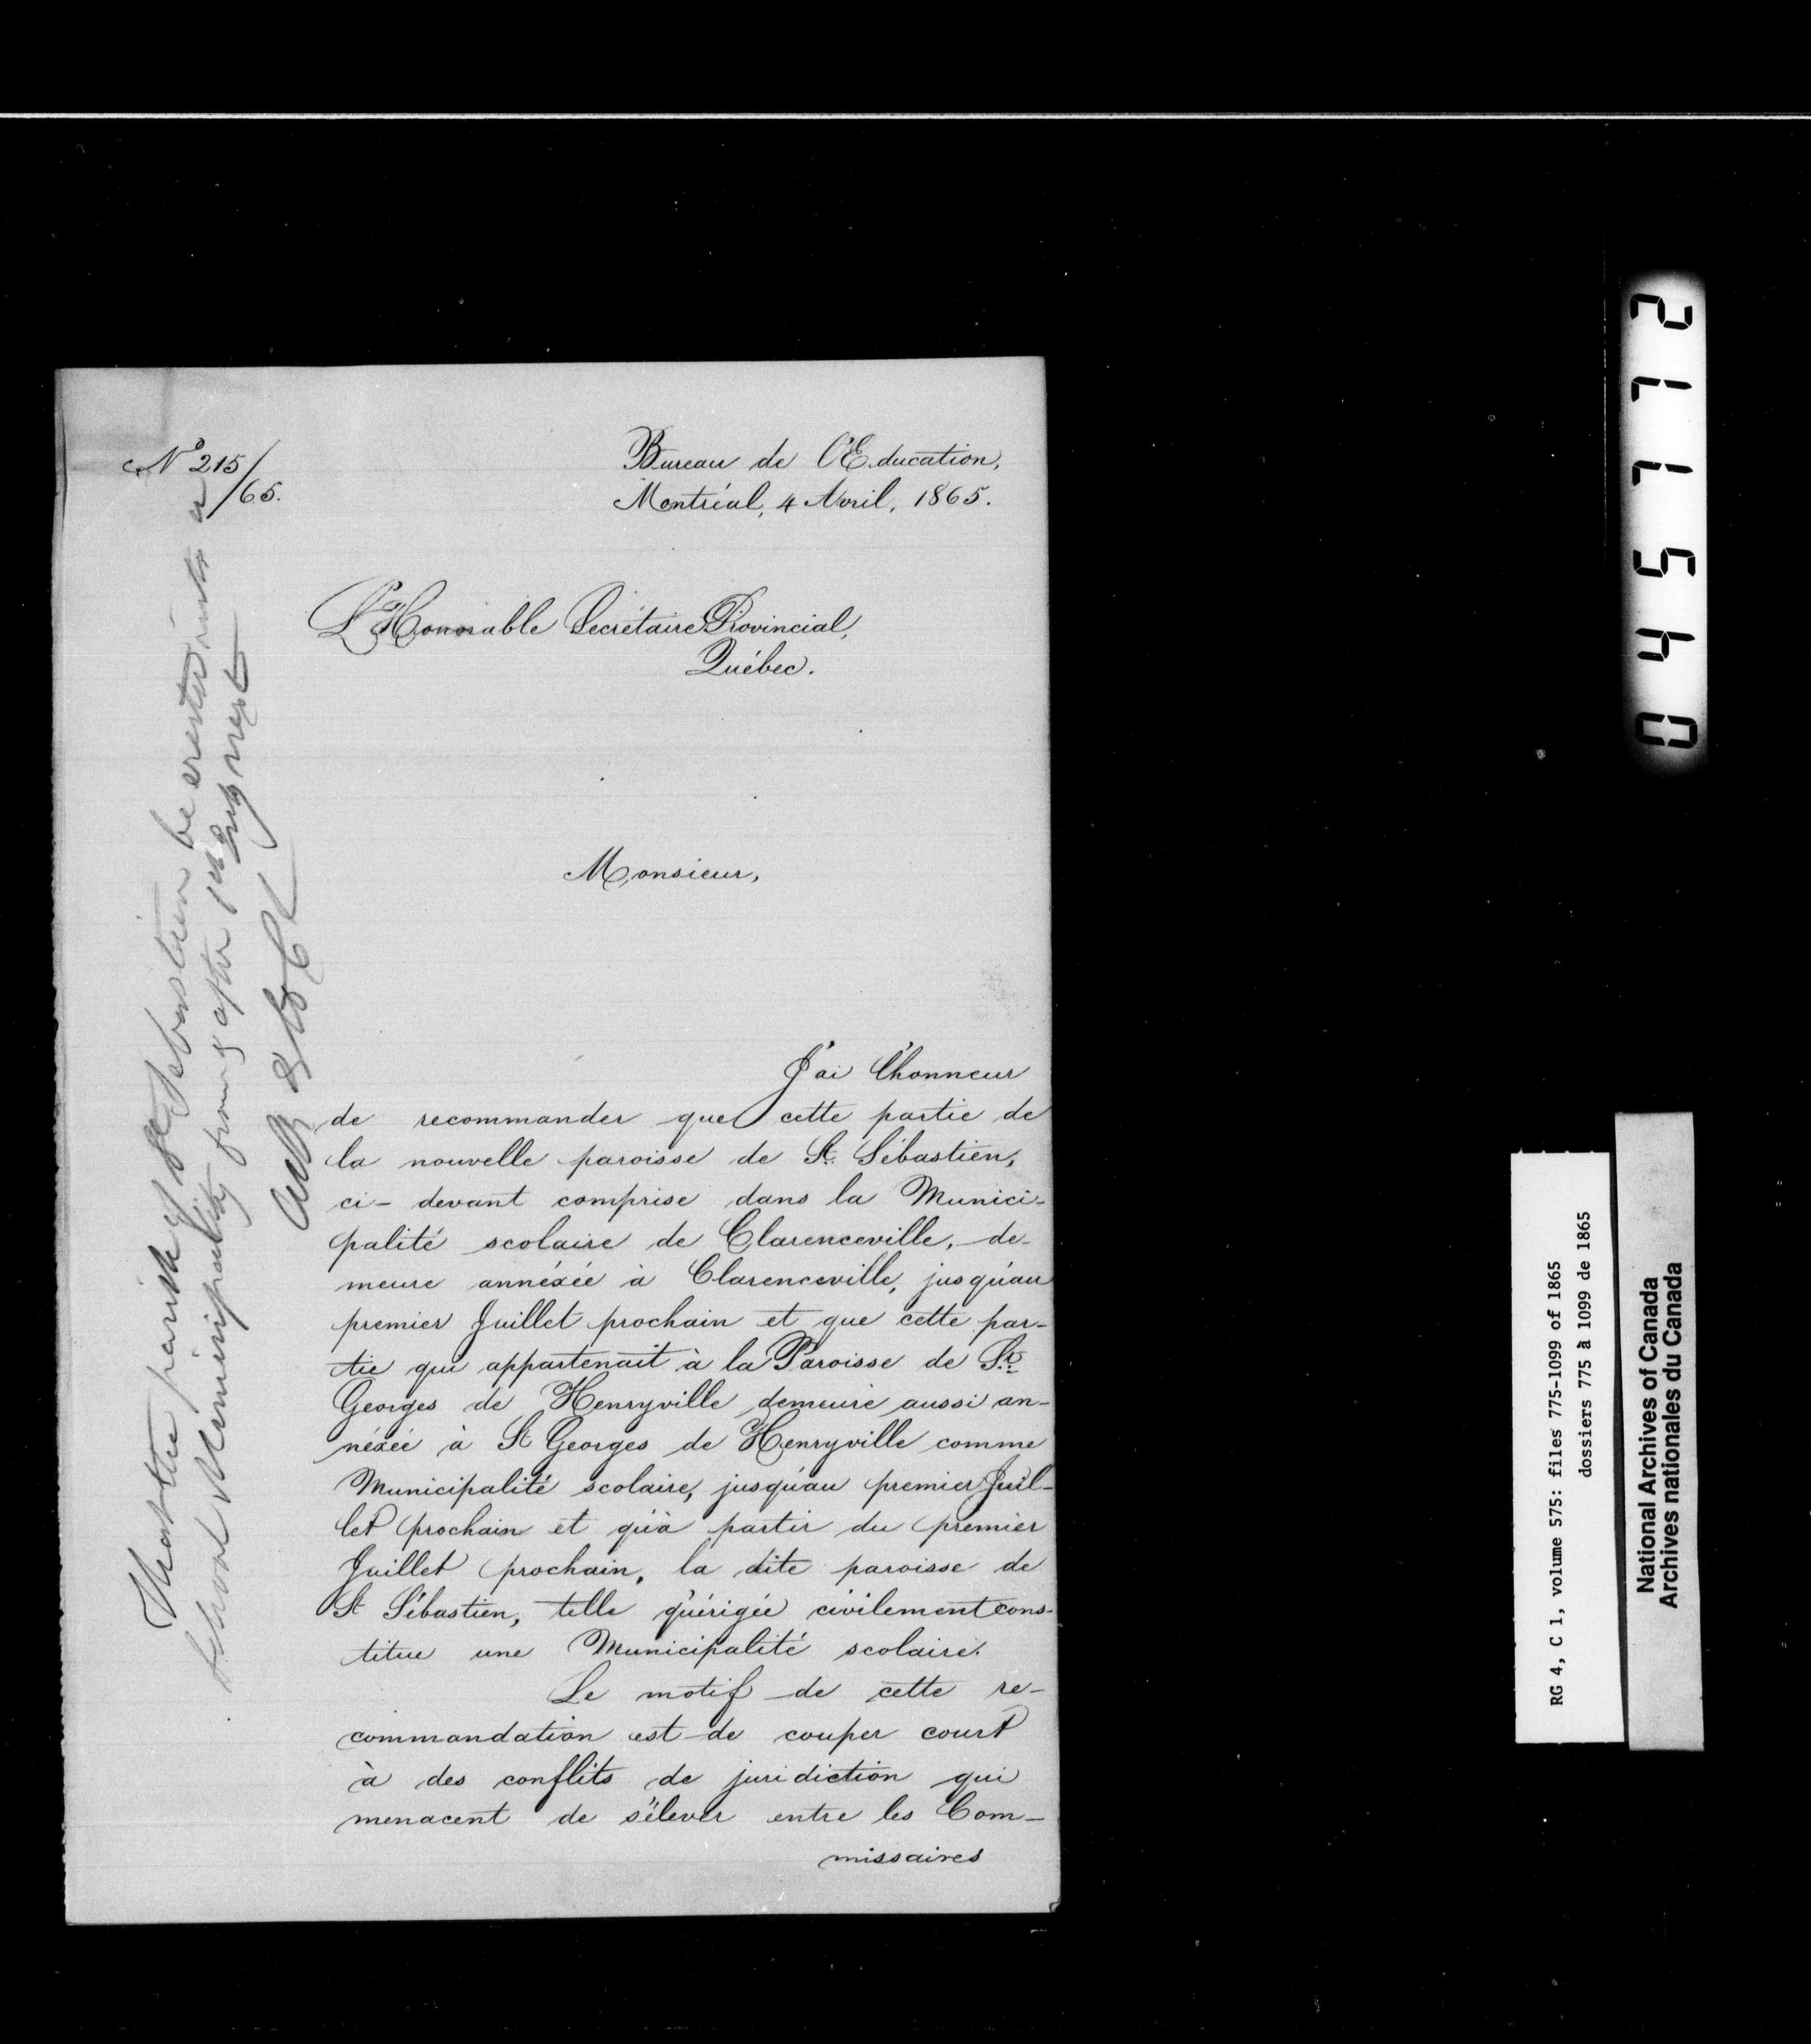 No 215/65.
Bureau de l'Education,
Montréal, 4 Avril, 1865.
L'Honorable Secrétaire Provincial,
Québec.
Monsieur,
J'ai l'honneur
de recommander que cette partie de
la nouvelle paroisse de St. Sébastien,
ci-devant comprise dans la Munici-
palité scolaire de Clarenceville, de-
meure annéxée à Clarenceville, jusqu'au
premier Juillet prochain et que cette par-
tie qui appartenait à la Paroisse de St.
Georges de Henryville demeure aussi an-
néxée à St Georges de Henryville comme
Municipalité scolaire, jusqu'au premier Juil-
let prochain et qu'à partir du premier
Juillet prochain, la dite paroisse de
St Sébastien, telle qu'érigée civilement cons-
titue une Municipalité scolaire.
Le motif de cette re-
commandation est de couper court
à des conflits de juridiction qui
menacent de s'élever entre les Com-
missaires
That the parish of St Sebastien be erected into a
School Municipality from & after 1st July next
04571 12
RG 4, C 1, volume 575: files 775-1099 of 1865
dossiers 775 à 1099 de 1865
National Archives of Canada
Archives nationales du Canada